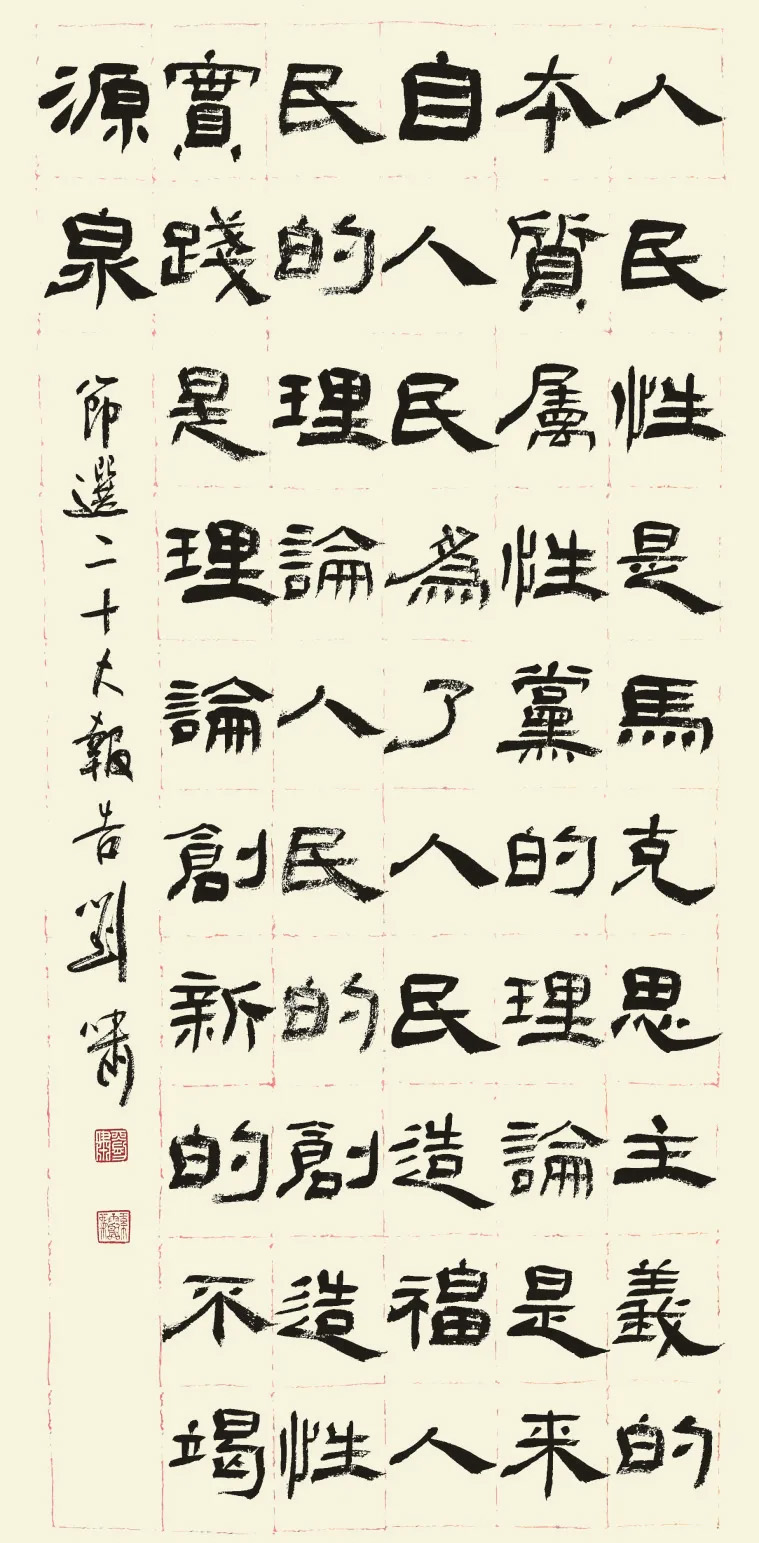 人民性是馬克思主義的
本質屬性黨的理論是来
自人民爲了人民造福人
民的理論人民的創造性
實踐是理論創新的不竭
源泉
節選二十大報告劉嘯